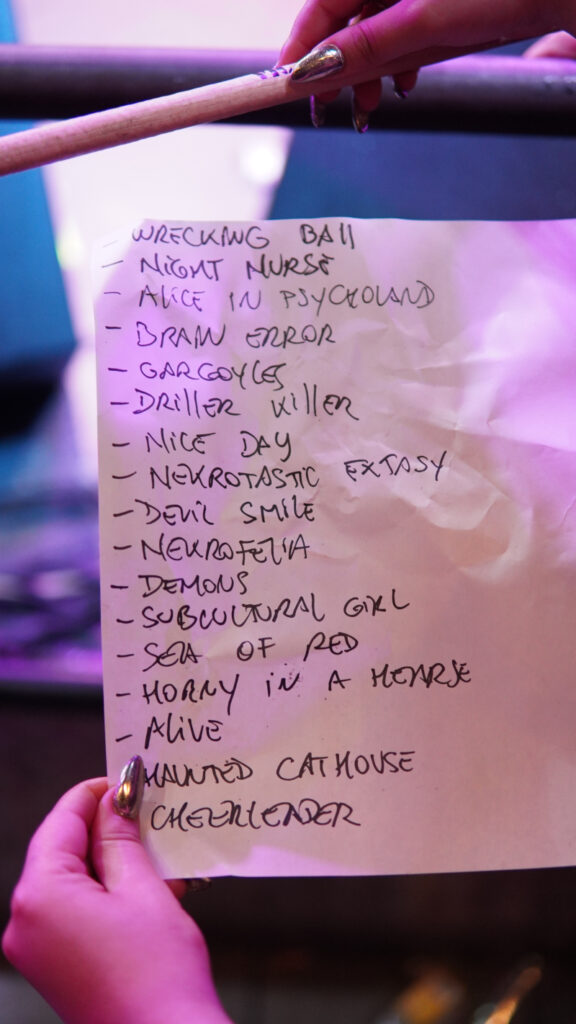 - WRECKING BAll
- NIGHT NURSE
- ALICE IN PSYCHOLAND
- BRAIN ERROR
- GARGOYLES
- DRIllER KIllER
- NICE DAY
- NEKROTASTIC EXTASY
- DEVIL SMILE
- NEKROFELIA
- DEMONS
- SUBCULTURAL GIRL
- SEA OF RED
- HORNY IN A HEARSE
- ALIVE
HAUNTED CATHOUSE
CHEERLEADER